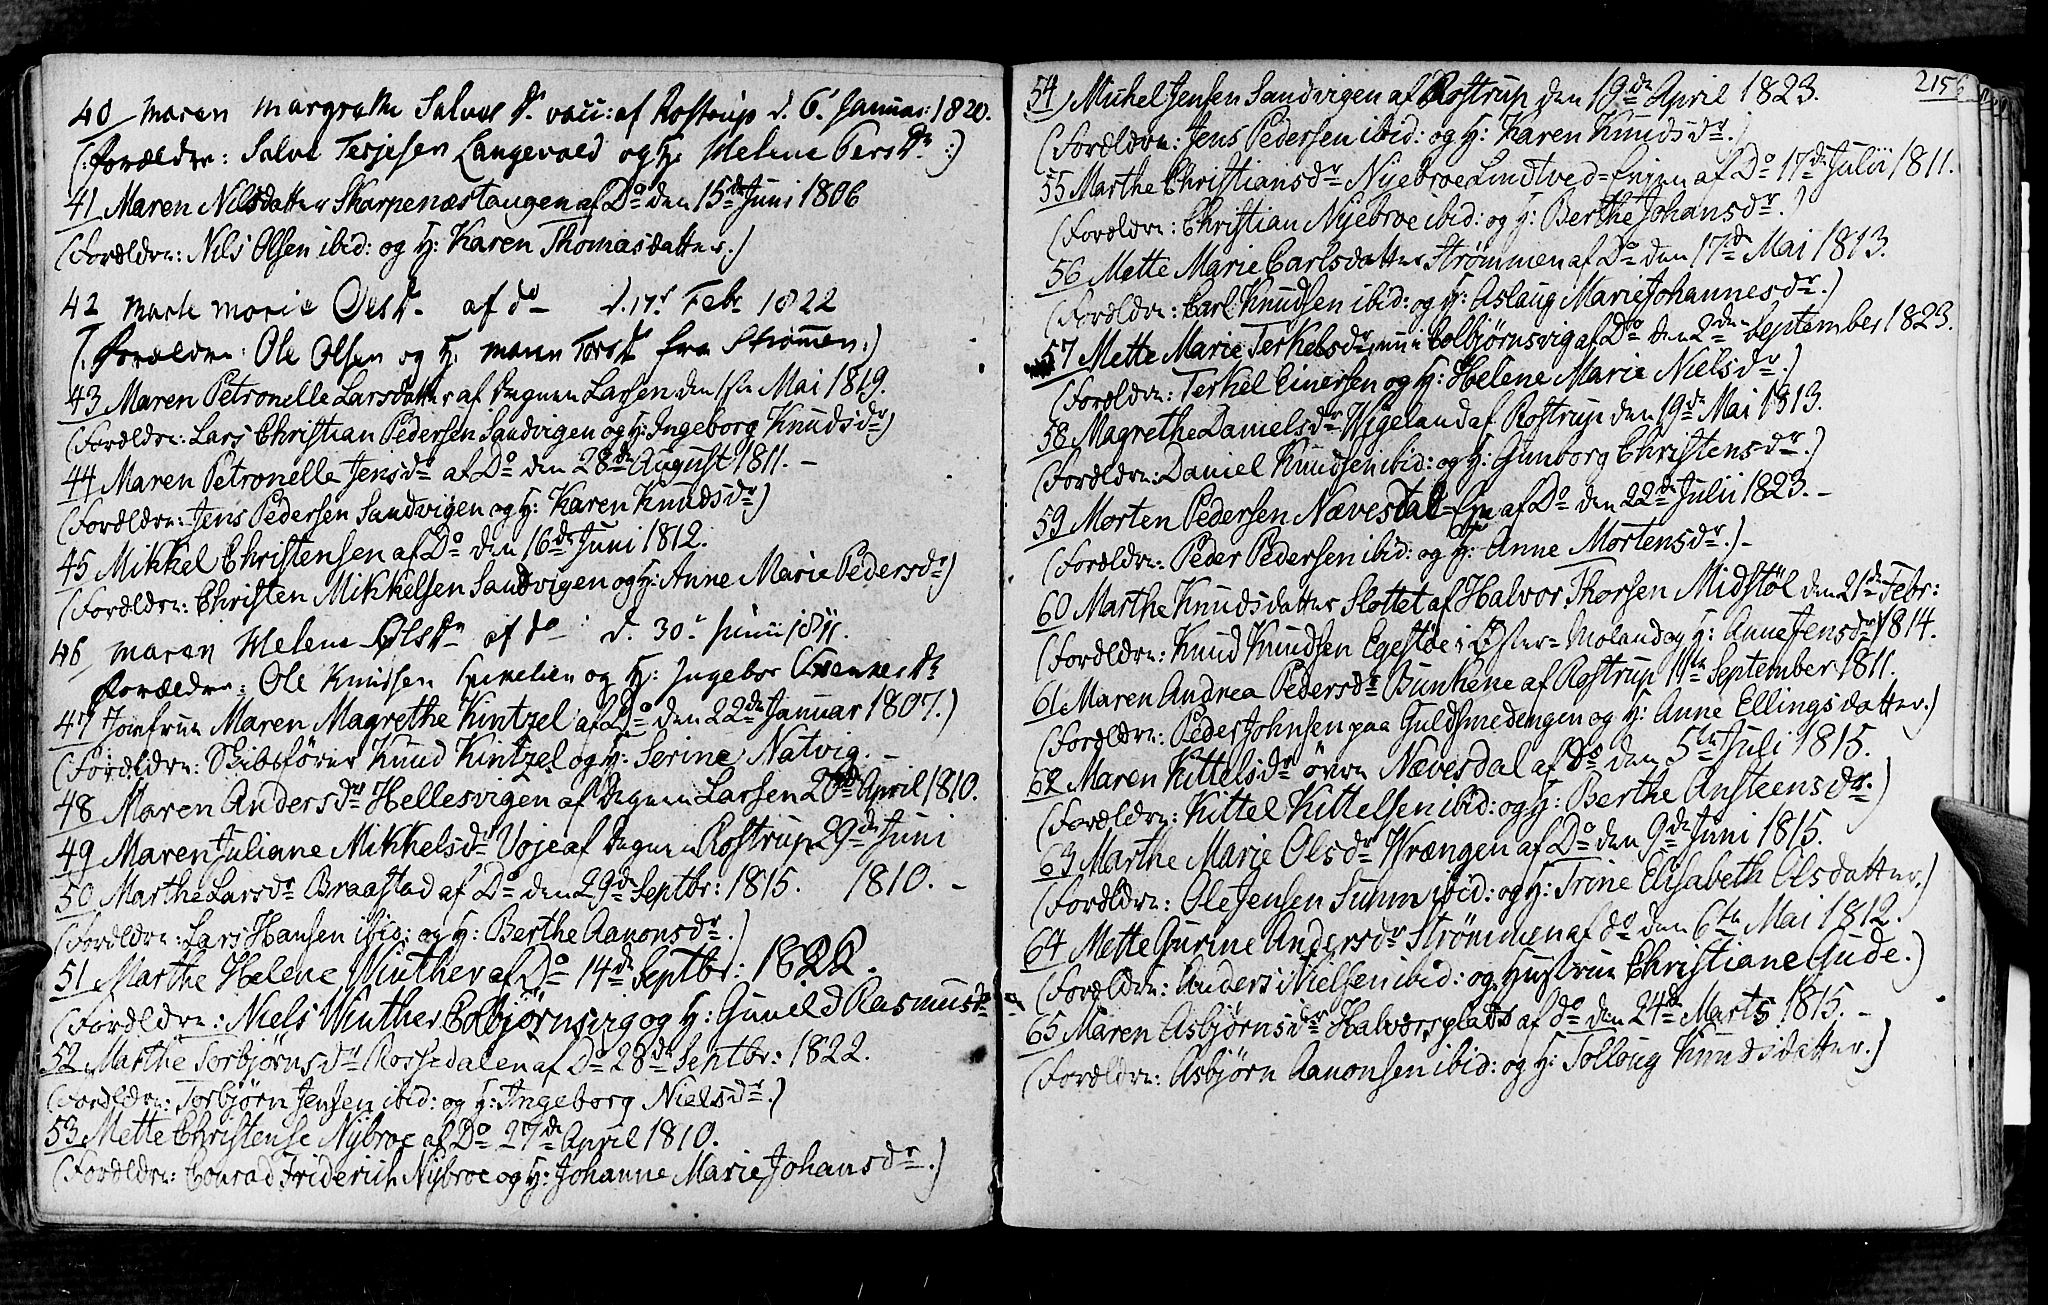 40 Maren Margrethe Salves Dr vacc: af Rostrup d. 6t Januar: 1820.
(: Forældre: Salve Terjesen Langevold og H: Helene Pers Dr :)
41 Maren Nilsdatter Skarpenæstangen af Do den 15de Juni 1806
(Forældre: Nils Olsen ibid: og H: Karen Thomasdatter.)
42 Marte Marie Ols Dr af do d. 17d Febr 1822
(. Forældre: Ole Olsen og H: Maren Tors Dr fra Strømmen :)
43 Maren Petronelle Larsdatter af Degnen Larsen den 1ste Mai 1819.
(Forældre: Lars Christian Pedersen Sandvigen og H: Ingeborg Knudsdr)
44 Maren Petronelle Jensdr af Do den 28de August 1811. –
(Forældre: Jens Pedersen Sandvigen og H: Karen Knudsdr)
45 Mikkel Christensen af Do den 16de Juni 1812.
(Forældre: Christen Mikkelsen Sandvigen og H: Anne Marie Pedersdr)
46 Maren Helene Ols Dr af do d. 30d Junii 1811.
Forældre: Ole Knudsen og H: Ingebor Dr
47 Jomfrue Maren Magrethe Kintzel af Do den 22de Januar 1807.)
(Forældre: Skibsfører Knud Kintzel og H: Serine Natvig. –
48 Maren Andersdr Hellesvigen af Degnen Larsen 20de April 1810.
49 Maren Juliane Mikkelsdr Voje af Degnen Rostrup 29de Juni
50 Marthe Larsdr Braastad af Do den 29de Septbr: 1815. 1810. –
(Forældre: Lars Hansen ibid: og H: Berthe Aanonsdr.)
51 Marthe Helene Winther af Do 14de Septbr: 1822.
(Forældre: Niels Winther Colbjørnsvig og H: Gunild Rasmusdr
52 Marthe Torbjørnsdr Rossedalen af Do 28de Septbr: 1822.
(Forældre: Torbjørn Jensen ibid: og H: Ingeborg Nielsdr.)
53 Mette Christense Nybroe af Do 27de April 1810.
(Forældre: Conrad Friderich Nybroe og H: Johanne Marie Johansdr.)
2156
54) Michel Jensen Sandvigen af Rostrup den 19de April 1823.
(Forældre: Jens Pedersen ibid: og H: Karen Knudsdr.)
55 Marthe Christiansdr Nyebroe Lindtved-Eien af Do 17de Julii 1811.
(Forældre: Christian Nyebroe ibid: og H: Berthe Johansdr.)
56 Mette Marie Carlsdatter Strømmen af Do den 17de Mai 1813.
(Forældre: Carl Knudsen ibid: og H: Aslaug Marie Johannesdr.)
57 Mette Marie Terkelsdr Colbjørnsvig af Do den 2den September 1823.
(Forældre: Terkel Einersen og H: Helene Marie Nielsdr.)
58 Magrethe Danielsdr Wigeland af Rostrup den 19de Mai 1813.
(Forældre: Daniel Knudsen ibid: og H: Gunborg Christensdr.)
59 Morten Pedersen Nævesdal-Eje af Do den 22de Julii 1823. –
(Forældre: Peder Pedersen ibid: og H: Anne Mortensdr.) –
60 Marthe Knudsdatter Slottet af Halvor Thorsen Midstøl den 21de Febr:
(Forældre: Knud Knudsen Egestøe i Øster-Moland og H: Anne Jensdr) 1814.
61 Maren Andrea Pedersdr Bunkene af Rostrup 11te September 1811.
(Forældre: Peder Johnsen paa Guldsmedengen og H: Anne Ellingsdatter.)
62 Maren Kittelsdr øvre Nævesdal af Do den 5te Juli 1815.
(Forældre: Kittel Kittelsen ibid: og H: Berthe Ansteensdr.)
63 Marthe Marie Olsdr Wrængen af Do den 9de Juni 1815.
(Forældre: Ole Jensen Suhm ibid: og H: Trine Elisabeth Olsdatter.)
64 Mette Gurine Andersdr Strømmen af do den 6te Mai 1812.
(Forældre: Anders Nielsen ibid: og Hustrue Christiane Gude.)
65 Maren Asbjørnsdr Halvorsplads af do den 24de Marts 1815. –
(Forældre: Asbjørn Aanonsen ibid: og H: Tolloug Knudsdatter.)